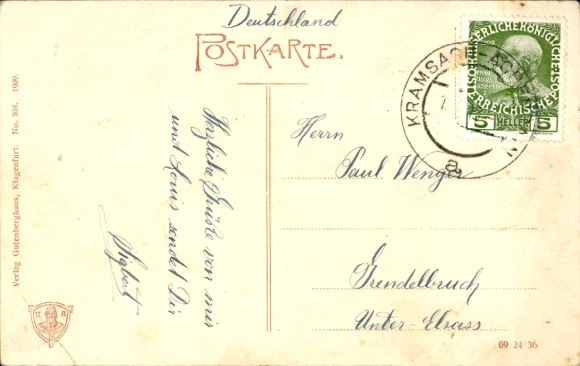 Deutschland
POSTKARTE.
KAISERLICHE KÖNIGLICHE
ÖSTERREICHISCHE POST
5 HELLER 5
KRAMSACH-ACHENRAIN
Herrn
Paul Wenger
Grendelbruch
Unter-Elsass
Herzliche Grüsse von mir
und Louis sendet Dir
Sigbert
Verlag Gutenberghaus, Klagenfurt. No. 308. 1909.
K A
09 24 36